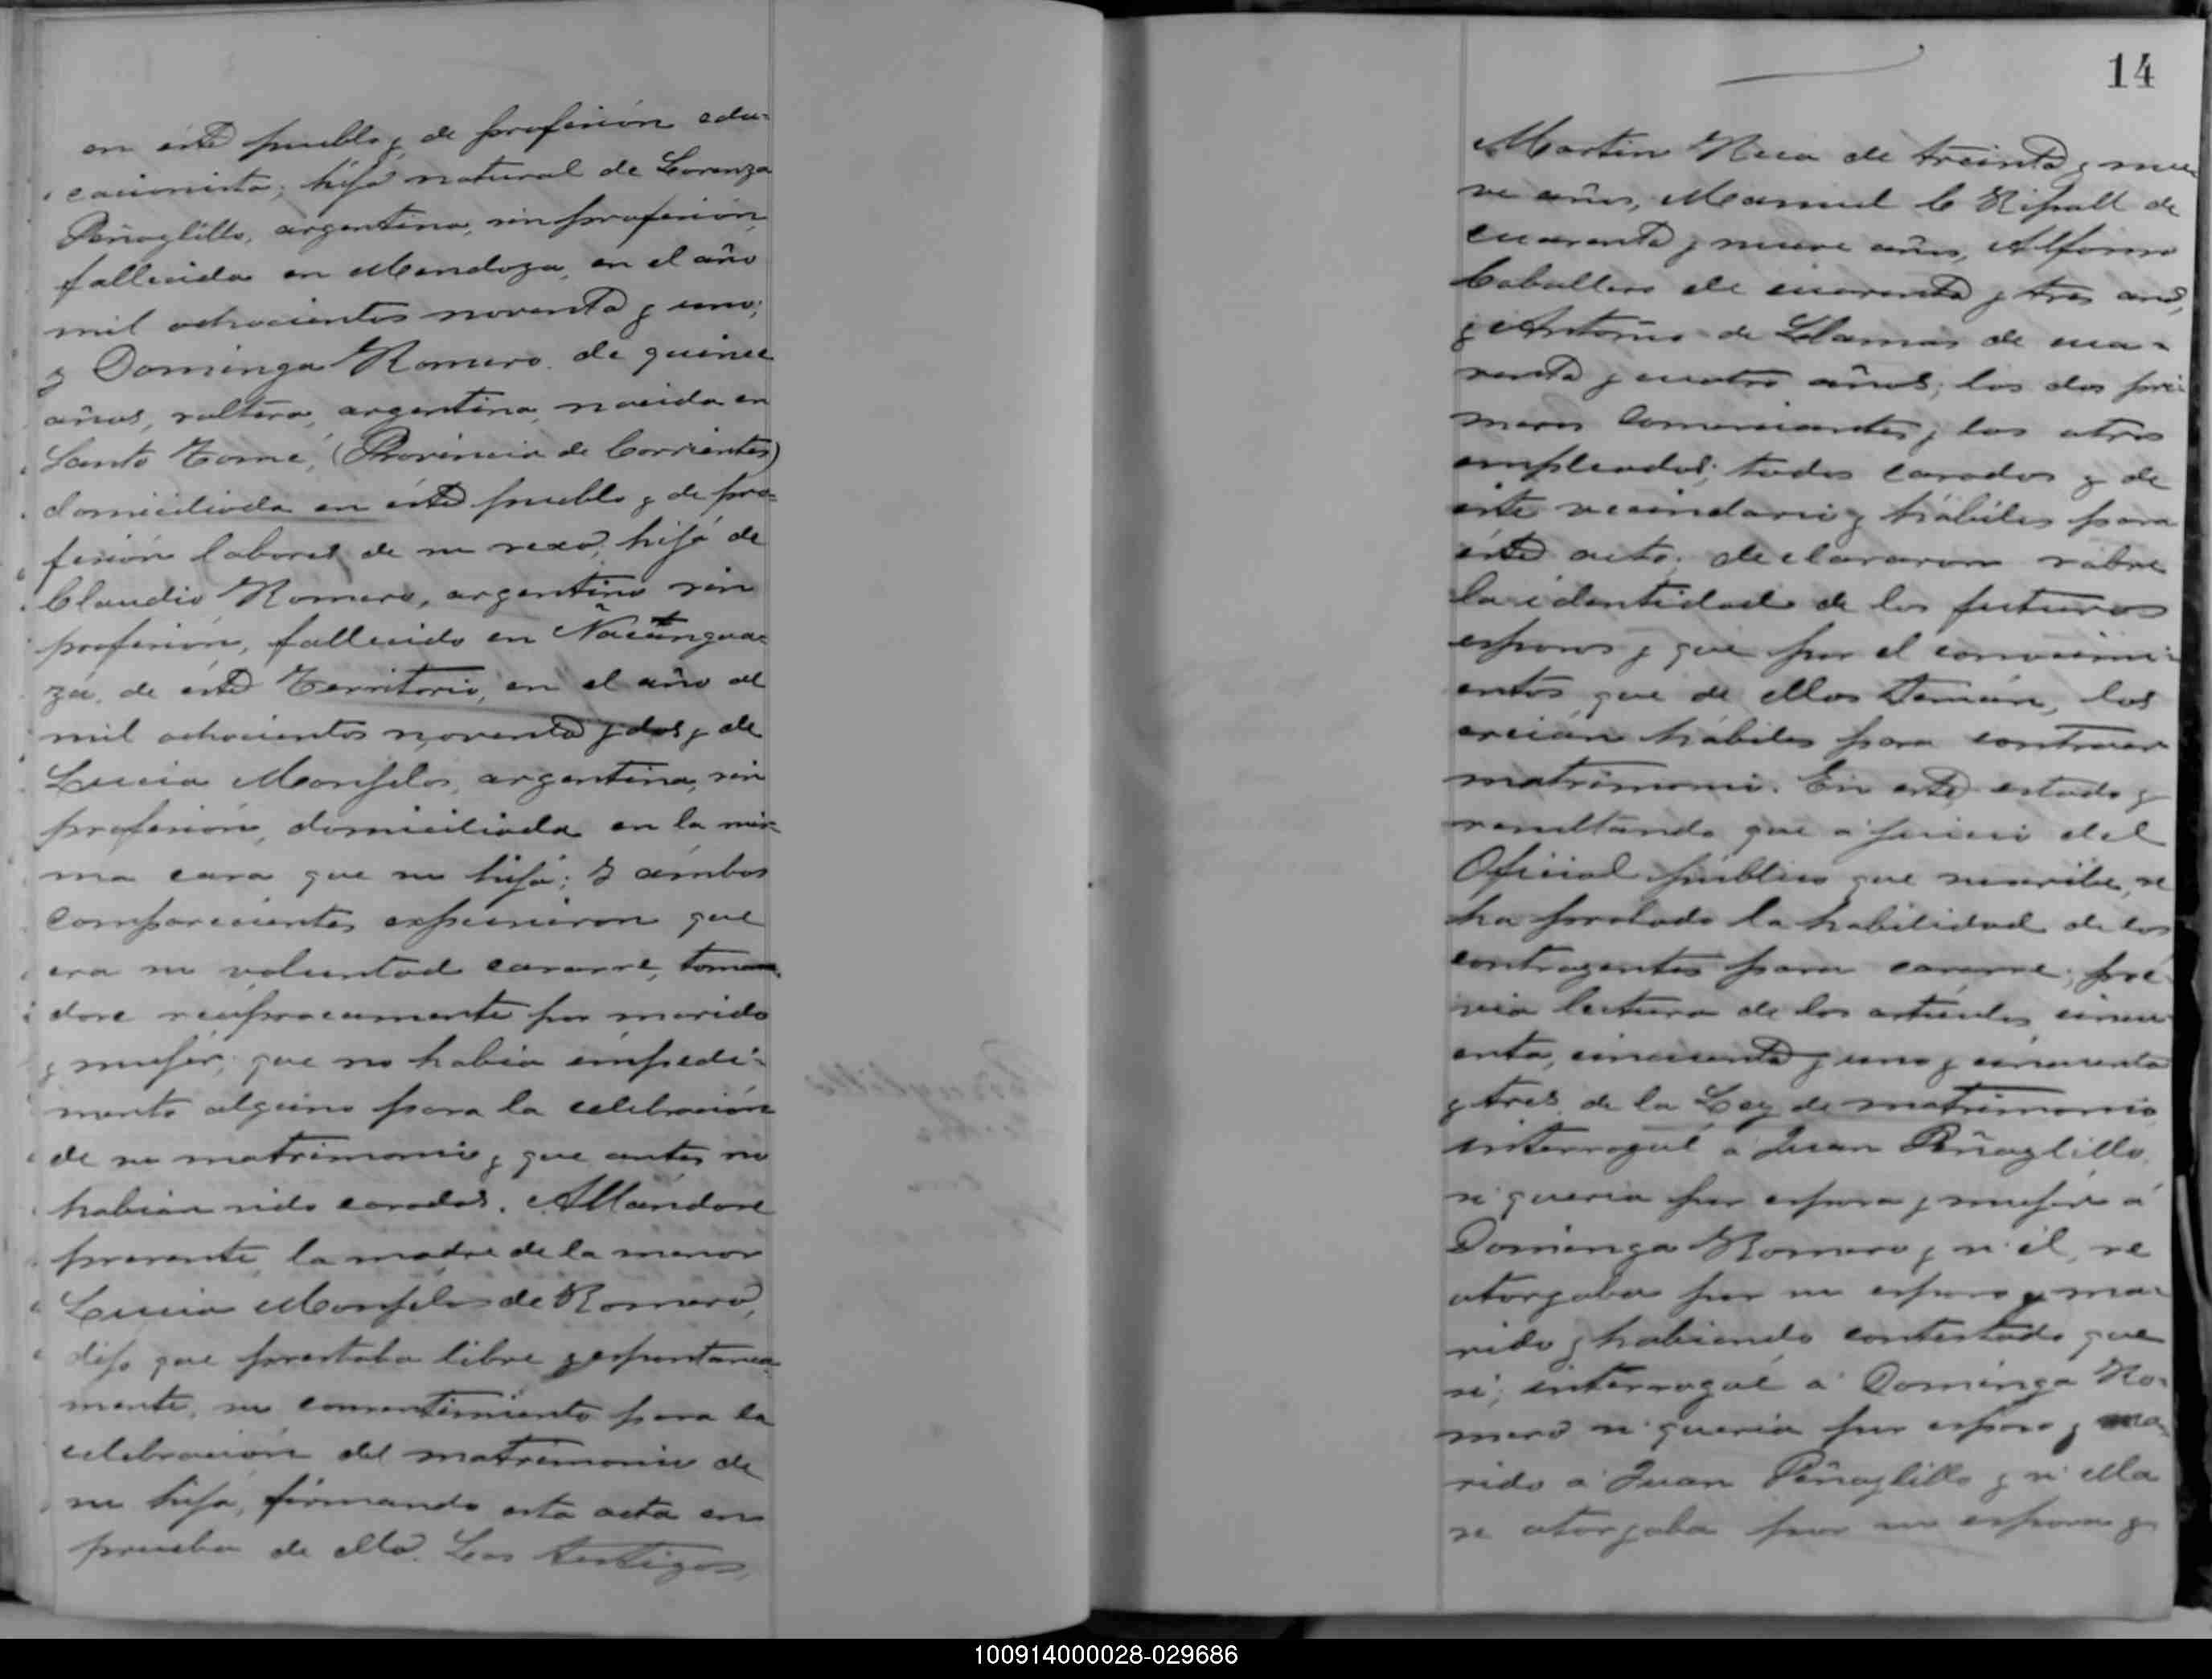 en éste pueblo y de profesión edu-
cacionista; hijo natural de Lorenza
Peñaglillo, argentina, sin profesión,
fallecida en Mendoza, en el año
mil ochocientos noventa y uno;
y Dominga Romero de quince
años, soltera, argentina, nacida en
Santo Tomé, (Provincia de Corrientes)
domiciliada en éste pueblo y de pro-
fesión labores de su sexo, hija de
Claudio Romero, argentino sin
profesión, fallecido en Ñacangua-
zú, de éste Territorio, en el año de
mil ochocientos noventa y dos y de
Lucia Monfelos, argentina, sin
profesión, domiciliada en la mis-
ma casa que su hija; y ambos
comparecientes expusieron que
era su voluntad casarse, toman-
dose reciprocamente por marido
y mujer; que no habia impedi-
mento alguno para la celebración
de su matrimonio y que antes no
habian sido casados. Allandose
presente, la madre de la menor
Lucia Monfelos de Romero,
dijo que prestaba libre y espontanea-
mente, su consentimiento para la
celebración del matrimonio de
su hija, firmando esta acta en
prueba de ello. Los testigos,
14
Martin de treinta y nue-
ve años, Manuel C Ripoll de
cuarenta y nueve años, Alfonso
Caballero de cuarenta y tres años,
y Antonio de Llamas de cua-
renta y cuatro años; los dos pri-
meros Comerciantes y los otros
empleados; todos casados y de
este vecindario y hábiles para
éste acto; declararon sobre
la identidad de los futuros
esposos y que por el conocimi-
ento que de ellos tenian, los
creian hábiles para contraer
matrimonio. En este estado y
resultando que a juicio del
Oficial público que suscribe, se
ha probado la habilidad de los
contrayentes para casarse; pré-
via lectura de los articulos cincu-
enta, cincuenta y uno y cincuenta
y tres de la Ley de matrimonio
interrogué á Juan Peñaglillo,
si queria por esposa y mujer á
Dominga Romero y si él, se
otorgaba por su esposo y ma-
rido y habiendo contestado que
si; interrogué á Dominga Ro-
mero si queria por esposo y ma-
rido a Juan Peñaglillo y si ella
se otorgaba por su esposa y
100914000028-029686